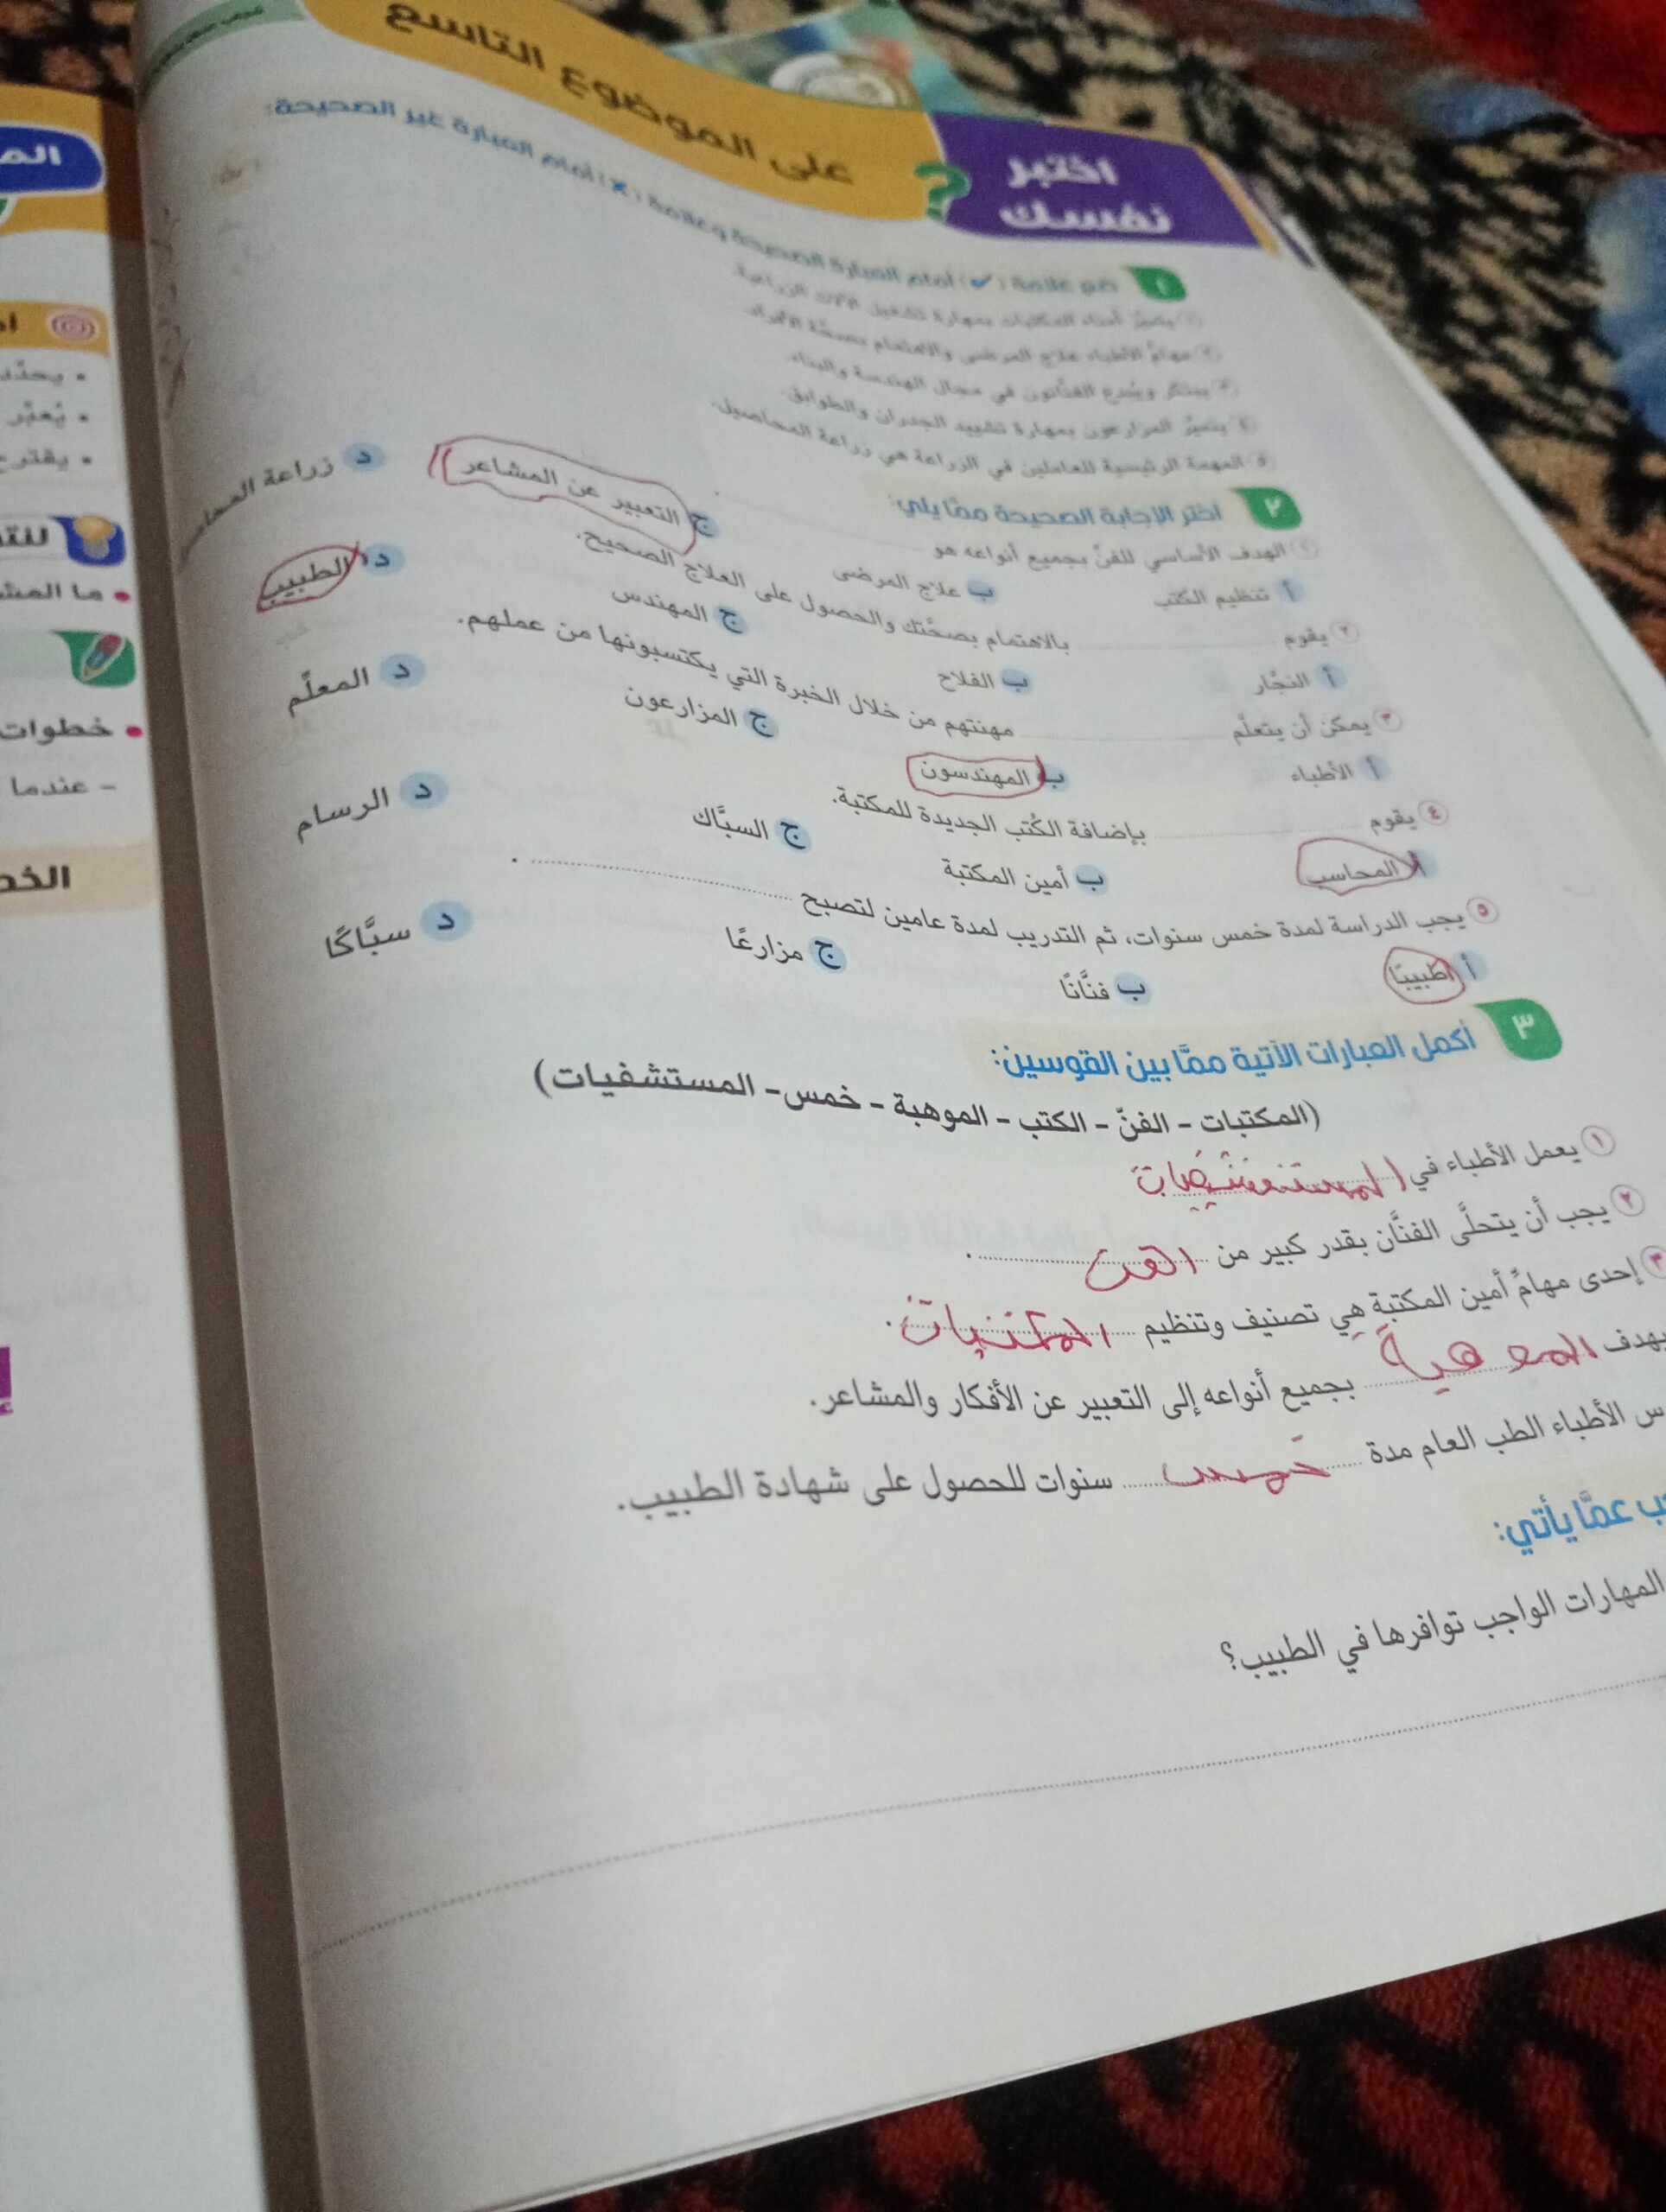 اختبر
نفسك
؟
على الموضوع التاسع
١ ضع علامة (✔) أمام العبارة الصحيحة وعلامة (✗) أمام العبارة غير الصحيحة:
١ يتميَّز أمناء المكتبات بمهارة تشغيل الآلات الزراعية.
٢ مهامُّ الأطباء علاج المرضى والاهتمام بصحَّة الأفراد.
٣ يبتكر ويُبدع الفنَّانون في مجال الهندسة والبناء.
٤ يتميَّز المزارعون بمهارة تشييد الجدران والطوابق.
٥ المهمة الرئيسية للعاملين في الزراعة هي زراعة المحاصيل.
٢ اختر الإجابة الصحيحة ممَّا يلي:
١ الهدف الأساسي للفنِّ بجميع أنواعه هو
أ تنظيم الكتب ب علاج المرضى ج التعبير عن المشاعر د زراعة
٢ يقوم بالاهتمام بصحَّتك والحصول على العلاج الصحيح.
أ النجَّار ب الفلاح ج المهندس د الطبيب
٣ يمكن أن يتعلَّم مهنتهم من خلال الخبرة التي يكتسبونها من عملهم.
أ الأطباء ب المهندسون ج المزارعون د المعلِّم
٤ يقوم بإضافة الكُتب الجديدة للمكتبة.
أ المحاسب ب أمين المكتبة ج السبَّاك د الرسام
٥ يجب الدراسة لمدة خمس سنوات، ثم التدريب لمدة عامين لتصبح .
أ طبيبًا ب فنَّانًا ج مزارعًا د سبَّاكًا
٣ أكمل العبارات الآتية ممَّا بين القوسين:
(المكتبات - الفنّ - الكتب - الموهبة - خمس - المستشفيات)
١ يعمل الأطباء في المستشفيات
٢ يجب أن يتحلَّى الفنَّان بقدر كبير من الفن .
٣ إحدى مهامِّ أمين المكتبة هي تصنيف وتنظيم المكتبات .
يهدف الموهبة بجميع أنواعه إلى التعبير عن الأفكار والمشاعر.
س الأطباء الطب العام مدة خمس سنوات للحصول على شهادة الطبيب.
ب عمَّا يأتي:
المهارات الواجب توافرها في الطبيب؟
يحدِّد
يقترح
ما
خطوات
- عندما